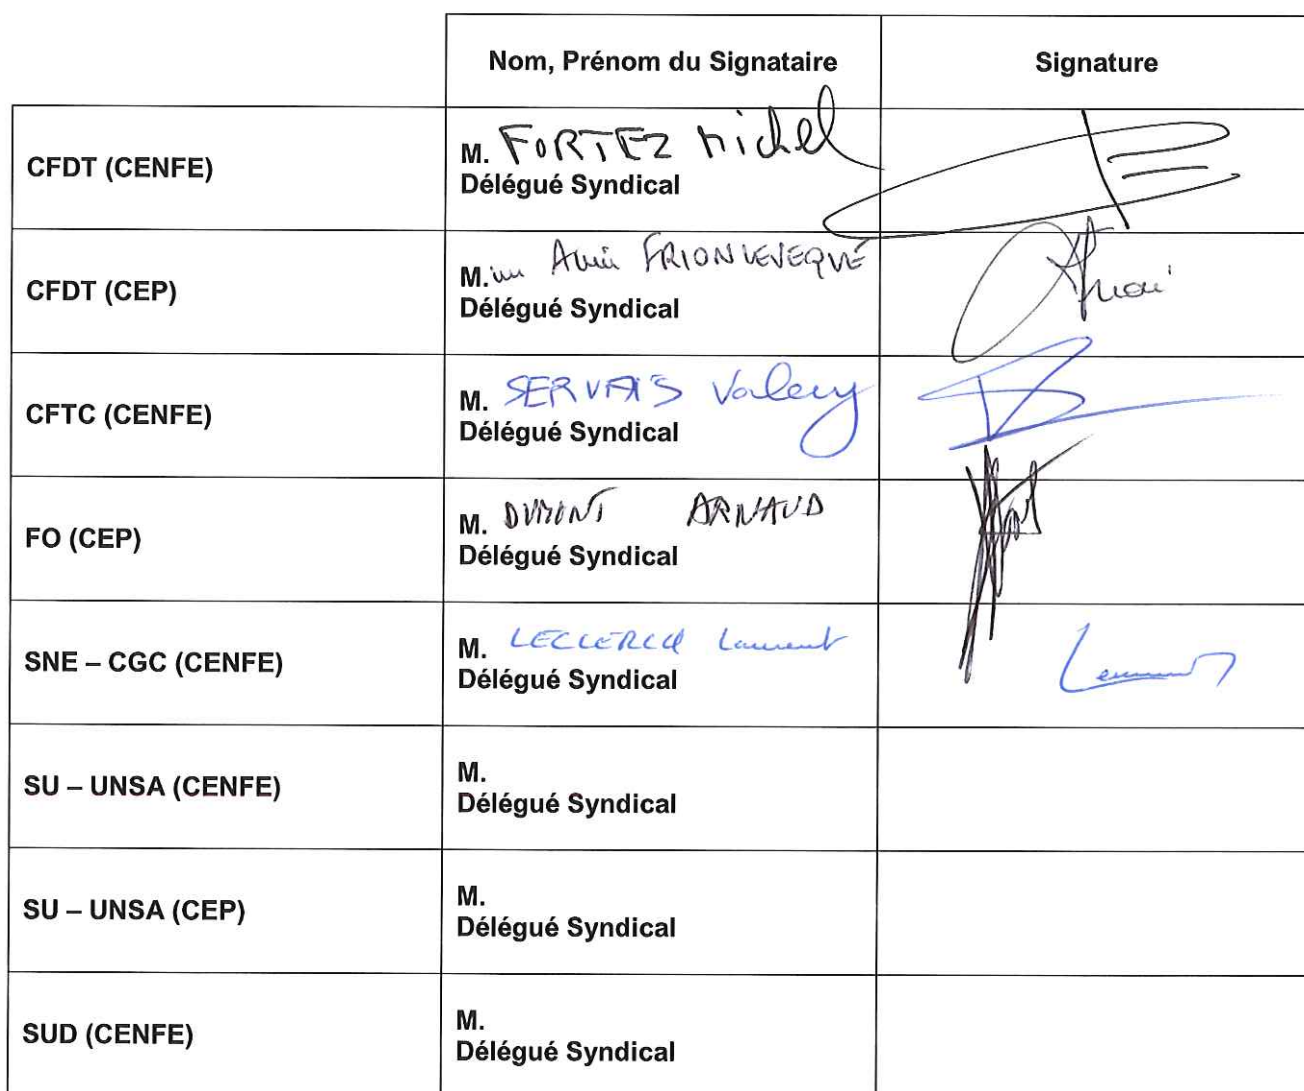 Nom, Prénom du Signataire
Signature
CFDT (CENFE)
M. FORTEZ Michel
Délégué Syndical
CFDT (CEP)
M. FRIONLEVEQUE
Délégué Syndical
CFTC (CENFE)
M. SERVAIS Valery
Délégué Syndical
FO (CEP)
M. DUMONT ARNAUD
Délégué Syndical
SNE – CGC (CENFE)
M. LECLERCQ Laurent
Délégué Syndical
SU – UNSA (CENFE)
M.
Délégué Syndical
SU – UNSA (CEP)
M.
Délégué Syndical
SUD (CENFE)
M.
Délégué Syndical